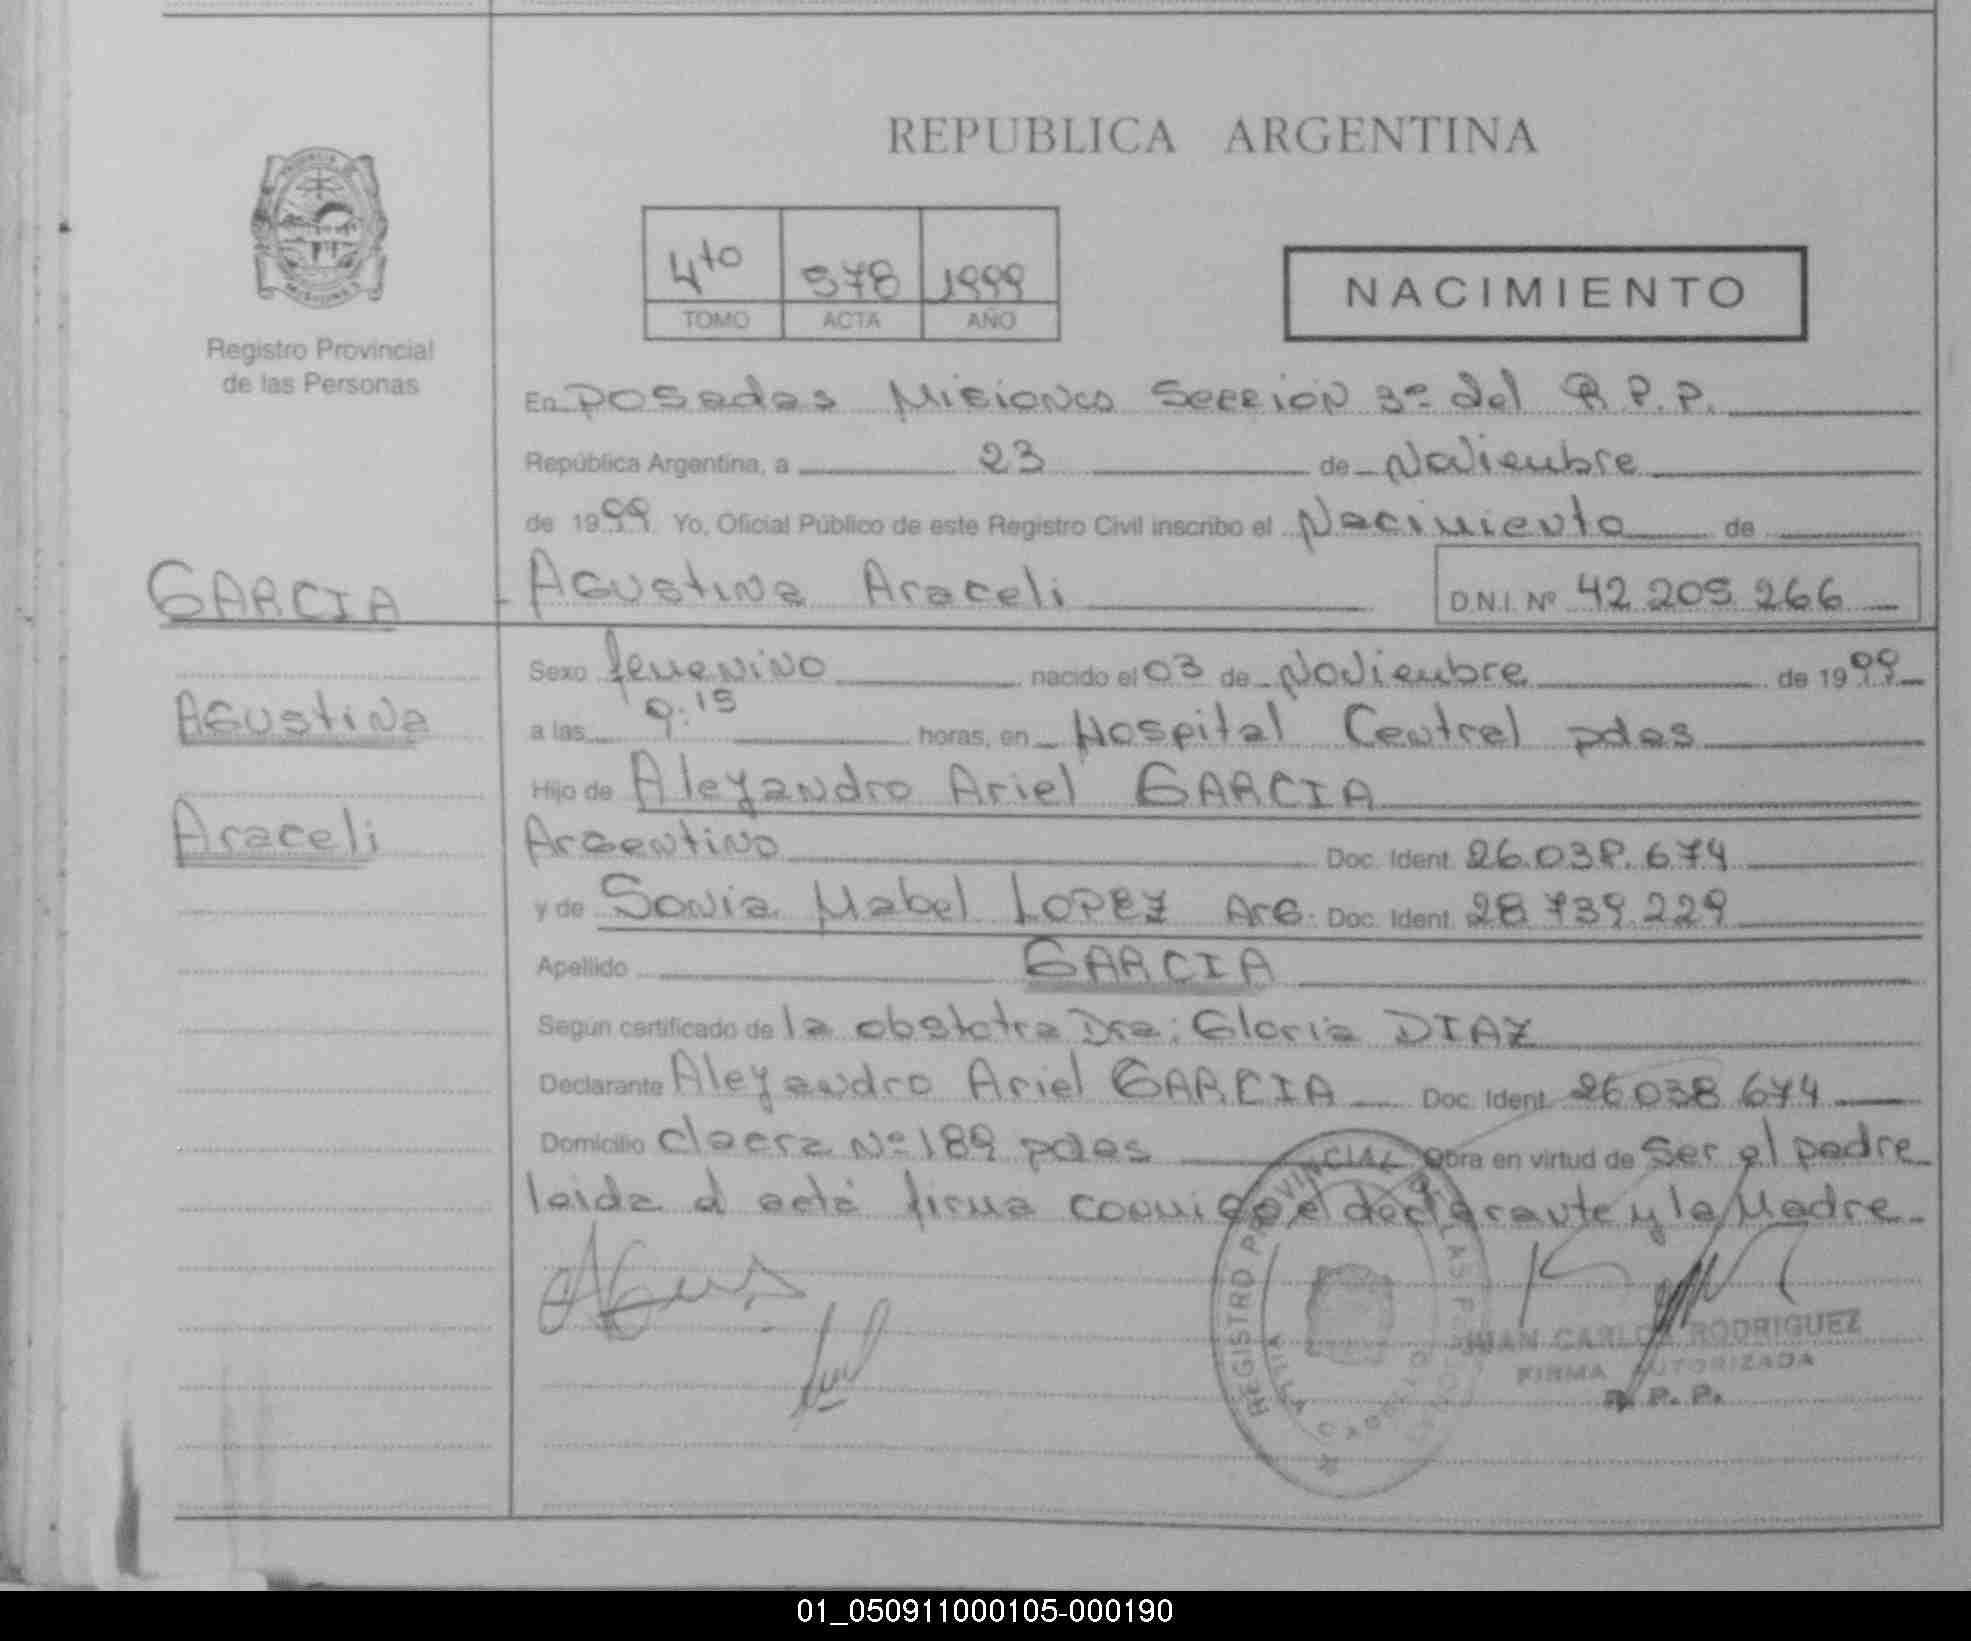 REPUBLICA ARGENTINA
4to 578 1999
TOMO ACTA AÑO
NACIMIENTO
Registro Provincial
de las Personas
En Posadas Misiones Sección 3ª del R.P.P.
República Argentina, a 23 de Noviembre
de 1999 Yo, Oficial Público de este Registro Civil inscribo el Nacimiento de
GARCIA
Agustina Araceli D.N.I. Nº 42 205 266
Sexo femenino nacido el 03 de Noviembre de 1999
Agustina
a las 9:15 horas, en Hospital Central pdas
Hijo de Alejandro Ariel GARCIA
Araceli
Argentino Doc. Ident. 26.038.674
y de Sonia Mabel LOPEZ Arg. Doc. Ident. 28 739 229
Apellido GARCIA
Según certificado de la obstetra Dra: Gloria DIAZ
Declarante Alejandro Ariel GARCIA Doc. Ident. 26 038 674
Domicilio Nº 189 pdas Obra en virtud de Ser el padre
leida el acta firma conmigo el declarante y la Madre
REGISTRO PROVINCIAL DE LAS PERSONAS
JUAN CARLOS RODRIGUEZ
FIRMA AUTORIZADA
R. P. P.
01_050911000105-000190